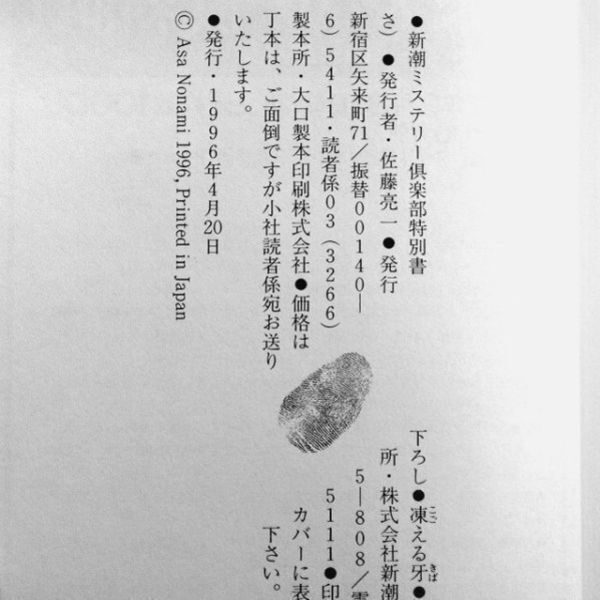 ●新潮ミステリー倶楽部特別書下ろし●凍える牙●
さ）●発行者・佐藤亮一●発行所・株式会社新潮
新宿区矢来町71／振替00140―5―808／
6）5411・読者係03（3266）5111●印
製本所・大口製本印刷株式会社●価格はカバーに表
丁本は、ご面倒ですが小社読者係宛お送り下さい。
いたします。
●発行・1996年4月20日
© Asa Nonami 1996, Printed in Japan